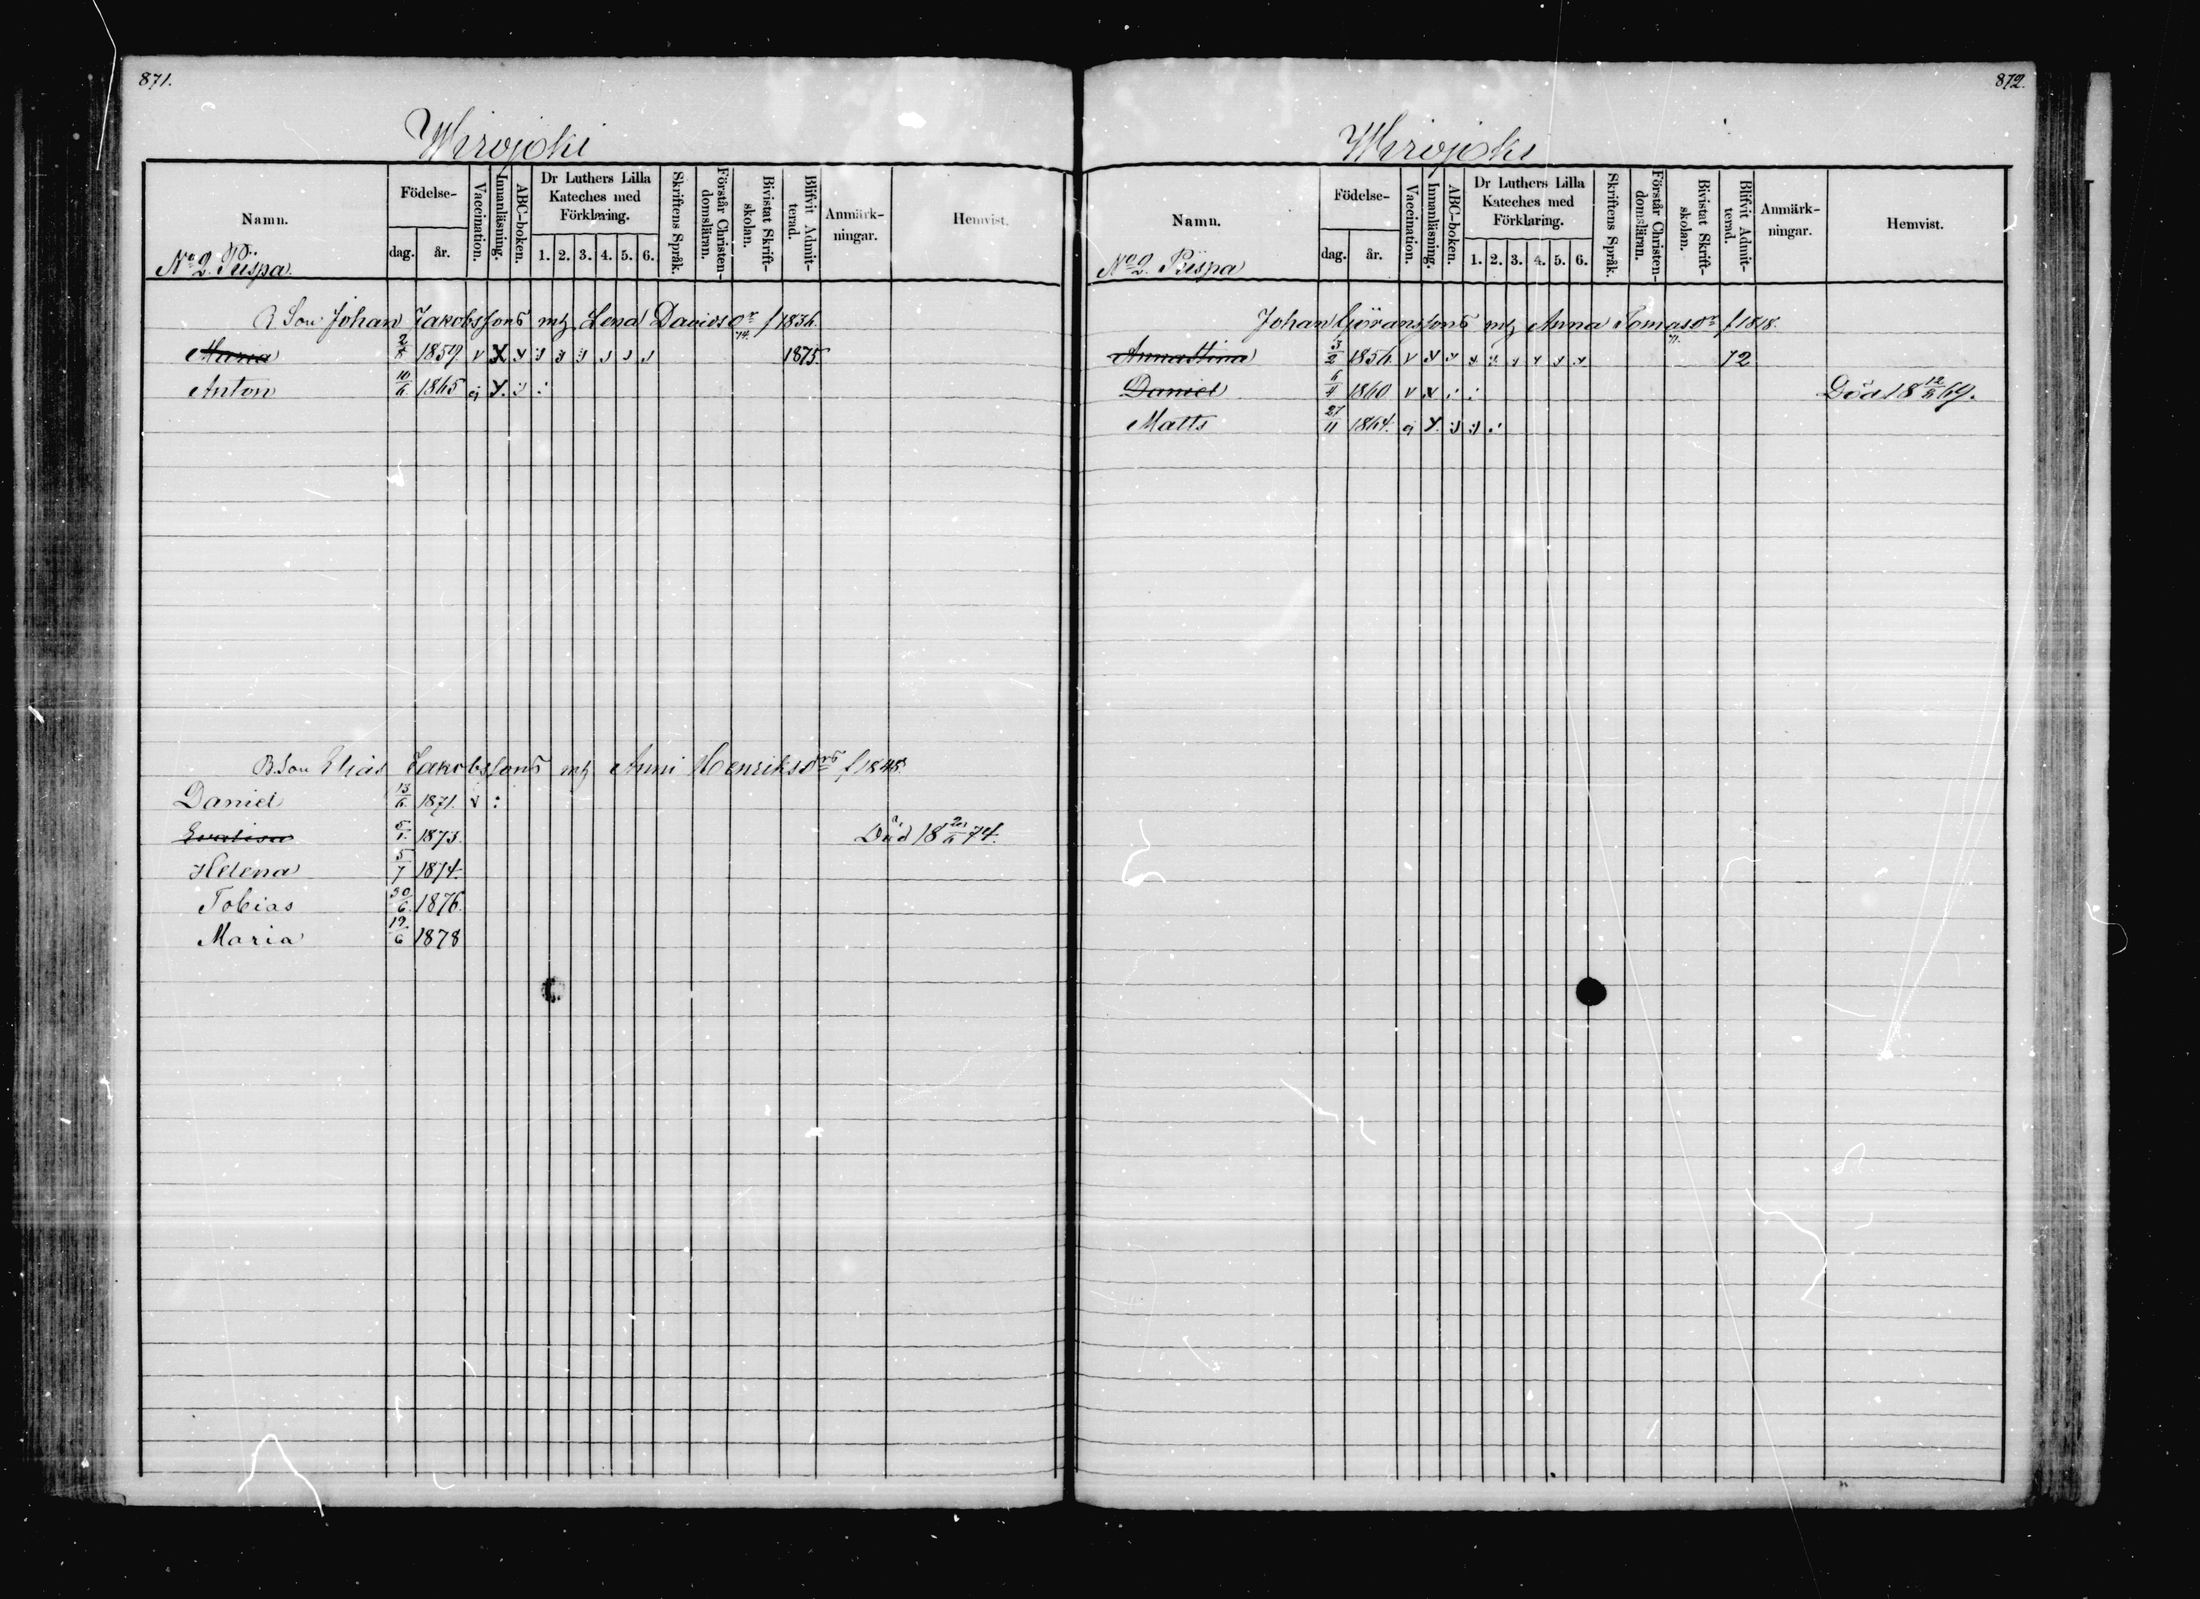 871.
Wirojoki
Namn.
Födelse-
dag.
år.
Vaccination.
Innanläsning.
ABC-boken.
Dr Luthers Lilla
Kateches med
Förklaring.
1. 2. 3. 4. 5. 6.
Skriftens Språk.
Förstår Christen-
domsläran.
Bivistat Skrift-
skolan.
Blifvit Admit-
terad.
Anmärk-
ningar.
Hemvist.
No 2. Piispa
B. Son Johan Jakobssons m h Lena Davidsdr f 1836.
Maria 2/8 1859 v 1875.
Anton 10/6 1865 ej
B. Son Elias Jakobssons m h Anni Henriksdrs f 1848.
Daniel 13/6 1871. v :
Evalisa 5/1 1873. Död 18 20/6 74.
Helena 5/7 1874
Tobias 30/6 1876.
Maria 19/6 1878
872.
Wirojoki
Namn.
Födelse-
dag.
år.
Vaccination.
Innanläsning.
ABC-boken.
Dr Luthers Lilla
Kateches med
Förklaring.
1. 2. 3. 4. 5. 6.
Skriftens Språk.
Förstår Christen-
domsläran.
Bivistat Skrift-
skolan.
Blifvit Admit-
terad.
Anmärk-
ningar.
Hemvist.
No 2. Piispa
Johan Göranssons m h Anna Tomasdr f 1818.
Anna Stina 3/2 1856 v 72
Daniel 6/4 1860 v Död 18 12/2 69.
Matts 27/11 1864.